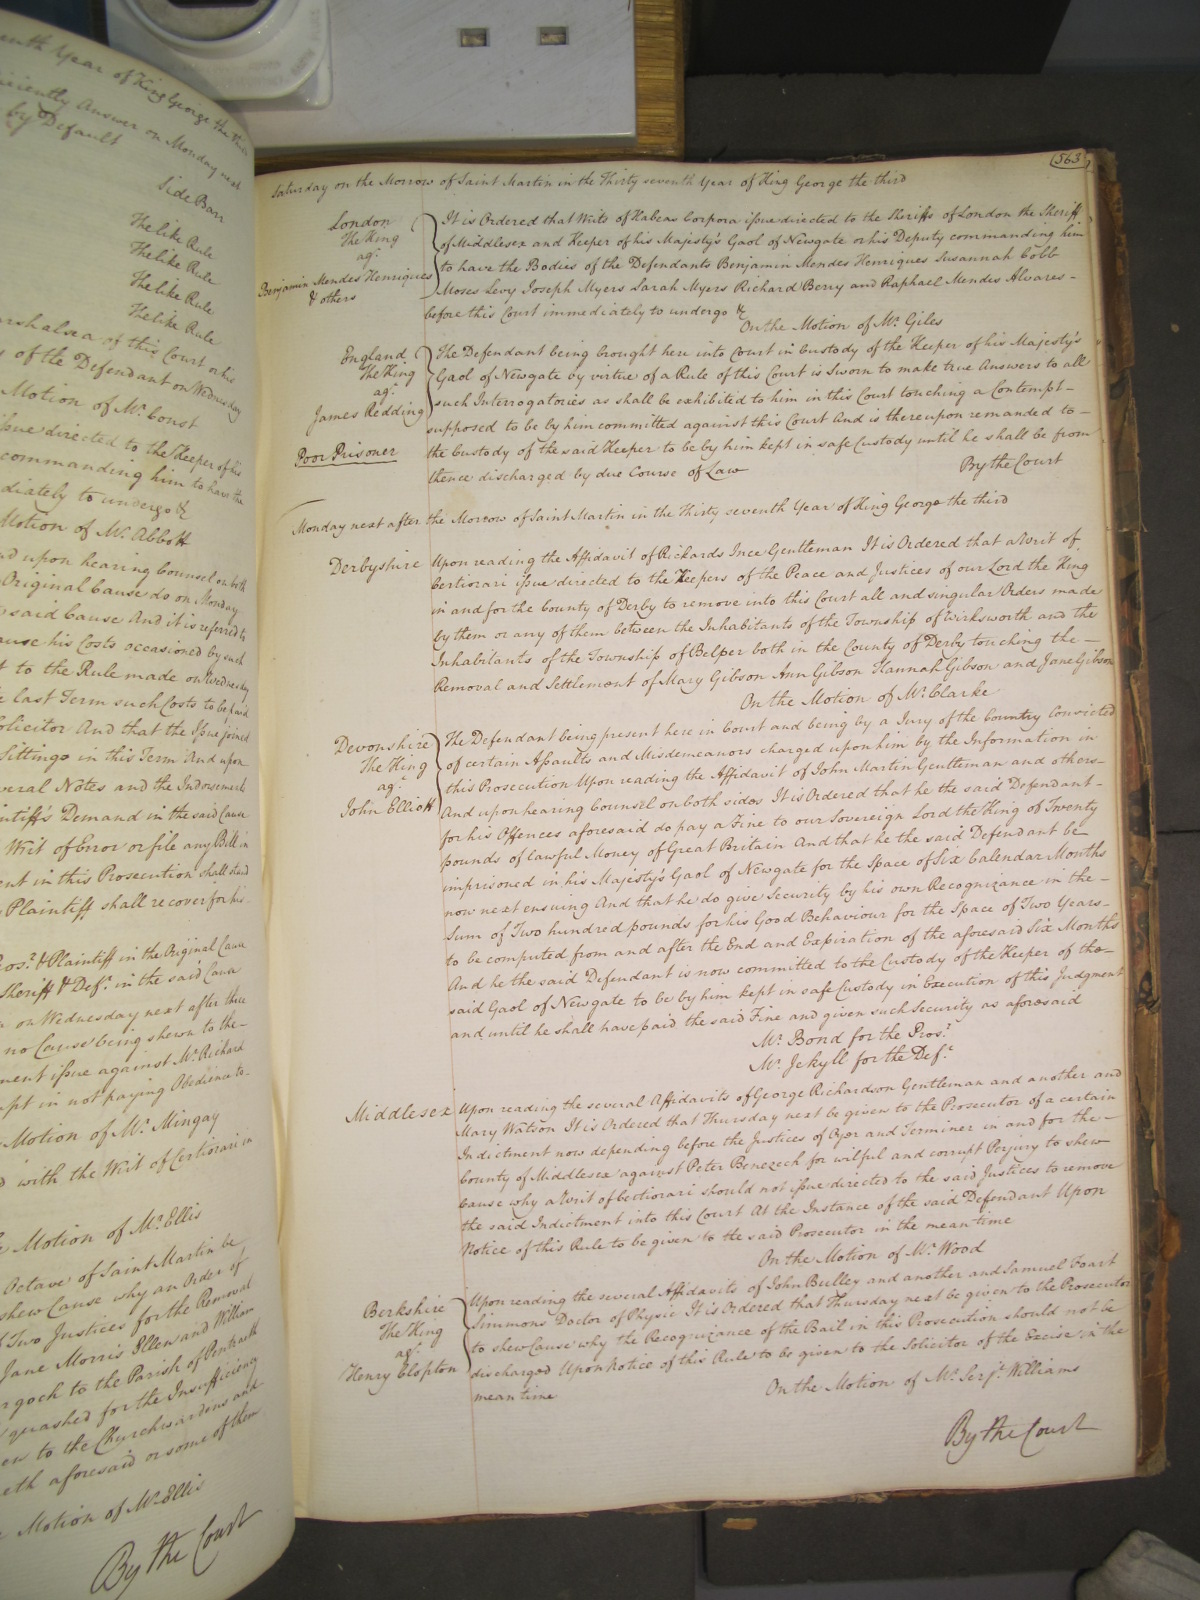 enth Year of King George the third
iciently Answer on Monday next
by Default
Side Barr
The like Rule
The like Rule
The like Rule
The like Rule
arshalsea of this Court or his
of the Defendant on Wednesday
Motion of Mr. Const
issue directed to the Keeper of his
commanding him to have the
diately to undergo &c
Motion of Mr. Abbott
nd upon hearing Counsel on both
Original Cause do on Monday
said Cause And it is referred to
ause his Costs occasioned by such
t to the Rule made on Wednesday
e last Term such Costs to be paid
olicitor And that the Issue joined
Sittings in this Term And upon
veral Notes and the Indorsements
intiff's Demand in the said Cause
Writ of Error or file any Bill in
ent in this Prosecution shall stand
Plaintiff shall recover for his
Pros.r & Plaintiff in the Original Cause
Sheriff & Def.t in the said Cause
on Wednesday next after three
no Cause being shewn to the
ment issue against Mr. Richard
mpt in not paying Obedience to
Motion of Mr. Mingay
with the Writ of Certiorari in
Motion of Mr. Ellis
Octave of Saint Martin be
shew Cause why an Order of
Two Justices for the Removal
Jane Morris Ellen and William
goch to the Parish of Pentraeth
quashed for the Insufficiency
en to the Churchwardens and
eth aforesaid or some of them
Motion of Mr. Ellis
By the Court
563
Saturday on the Morrow of Saint Martin in the Thirty seventh Year of King George the third
London
The King
ag.t
Benjamin Mendes Henriques
& others
It is Ordered that Writs of Habeas Corpora issue directed to the Sheriffs of London the Sheriff
of Middlesex and Keeper of his Majesty's Gaol of Newgate or his Deputy commanding him
to have the Bodies of the Defendants Benjamin Mendes Henriques Susannah Cobb
Moses Levy Joseph Myers Sarah Myers Richard Berry and Raphael Mendes Alvares -
before this Court immediately to undergo &c
On the Motion of Mr. Giles
England
The King
ag.t
James Redding
Poor Prisoner
The Defendant being brought here into Court in Custody of the Keeper of his Majesty's
Gaol of Newgate by virtue of a Rule of this Court is Sworn to make true Answers to all
such Interrogatories as shall be exhibited to him in this Court touching a Contempt -
supposed to be by him committed against this Court And is thereupon remanded to -
the Custody of the said Keeper to be by him kept in safe Custody until he shall be from
thence discharged by due Course of Law
By the Court
Monday next after the Morrow of Saint Martin in the Thirty seventh Year of King George the third
Derbyshire
Upon reading the Affidavit of Rickards Ince Gentleman It is Ordered that a Writ of
Certiorari issue directed to the Keepers of the Peace and Justices of our Lord the King
in and for the County of Derby to remove into this Court all and singular Orders made
by them or any of them between the Inhabitants of the Township of Wirksworth and the
Inhabitants of the Township of Belper both in the County of Derby touching the -
Removal and Settlement of Mary Gibson Ann Gibson Hannah Gibson and Jane Gibson
On the Motion of Mr. Clarke
Devonshire
The King
ag.t
John Elliott
The Defendant being present here in Court and being by a Jury of the Country Convicted
of certain Assaults and Misdemeanors charged upon him by the Information in
this Prosecution Upon reading the Affidavit of John Martin Gentleman and others -
And upon hearing Counsel on both sides It is Ordered that he the said Defendant -
for his Offences aforesaid do pay a Fine to our Sovereign Lord the King of Twenty
pounds of lawful Money of Great Britain And that he the said Defendant be
imprisoned in his Majesty's Gaol of Newgate for the Space of Six Calendar Months
now next ensuing And that he do give Security by his own Recognizance in the -
Sum of Two hundred pounds for his Good Behaviour for the Space of Two Years -
to be computed from and after the End and Expiration of the aforesaid Six Months
And he the said Defendant is now committed to the Custody of the Keeper of the -
said Gaol of Newgate to be by him kept in safe Custody in Execution of this Judgment
and until he shall have paid the said Fine and given such Security as aforesaid
Mr. Bond for the Pros.r
Mr. Jekyll for the Def.t
Middlesex
Upon reading the several Affidavits of George Richardson Gentleman and another and
Mary Watson It is Ordered that Thursday next be given to the Prosecutor of a certain
Indictment now depending before the Justices of Oyer and Terminer in and for the -
County of Middlesex against Peter Benezech for wilful and corrupt Perjury to shew
Cause why a Writ of Certiorari should not issue directed to the said Justices to remove
the said Indictment into this Court At the Instance of the said Defendant Upon
Notice of this Rule to be given to the said Prosecutor in the mean time
On the Motion of Mr. Wood
Berkshire
The King
ag.t
Henry Clopton
Upon reading the several Affidavits of John Bulley and another and Samuel Foart
Simmons Doctor of Physic It is Ordered that Thursday next be given to the Prosecutor
to shew Cause why the Recognizance of the Bail in this Prosecution should not be
discharged Upon Notice of this Rule to be given to the Solicitor of the Excise in the
mean time
On the Motion of Mr. Serj.t Williams
By the Court